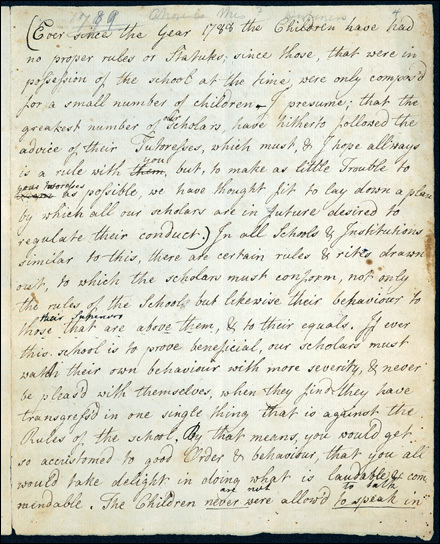 1789
(Ever since the Year 1788 the Children have had
no proper rules or Statutes, since those, that were in
possession of the school at the time, were only compos'd
for a small number of children. I presume, that the
our
greatest number of scholars, have hitherto followed the
advice of their Tutoresses, which must, & I hope allways
you
is a rule with them, but, to make as little Trouble to
your tutoresses
as possible, we have thought fit to lay down a plan
by which all our scholars are in future desired to
regulate their conduct.) In all Schools & Institutions
similar to this, there are certain rules & rites drawn
out, to which the scholars must conform, not only
the rules of the Schools but likewise their behaviour to
their Superiors
those that are above them, & to their equals. If ever
this school is to prove beneficial, our scholars must
watch their own behaviour with more severity, & never
be pleas'd with themselves, when they find they have
transgress'd in one single thing that is against the
Rules of the school. By that means, you would get
so accustomed to good Order & behaviour, that you all
would take delight in doing what is laudable & com
mindable. The Children never were allow'd to speak in
are not to talk